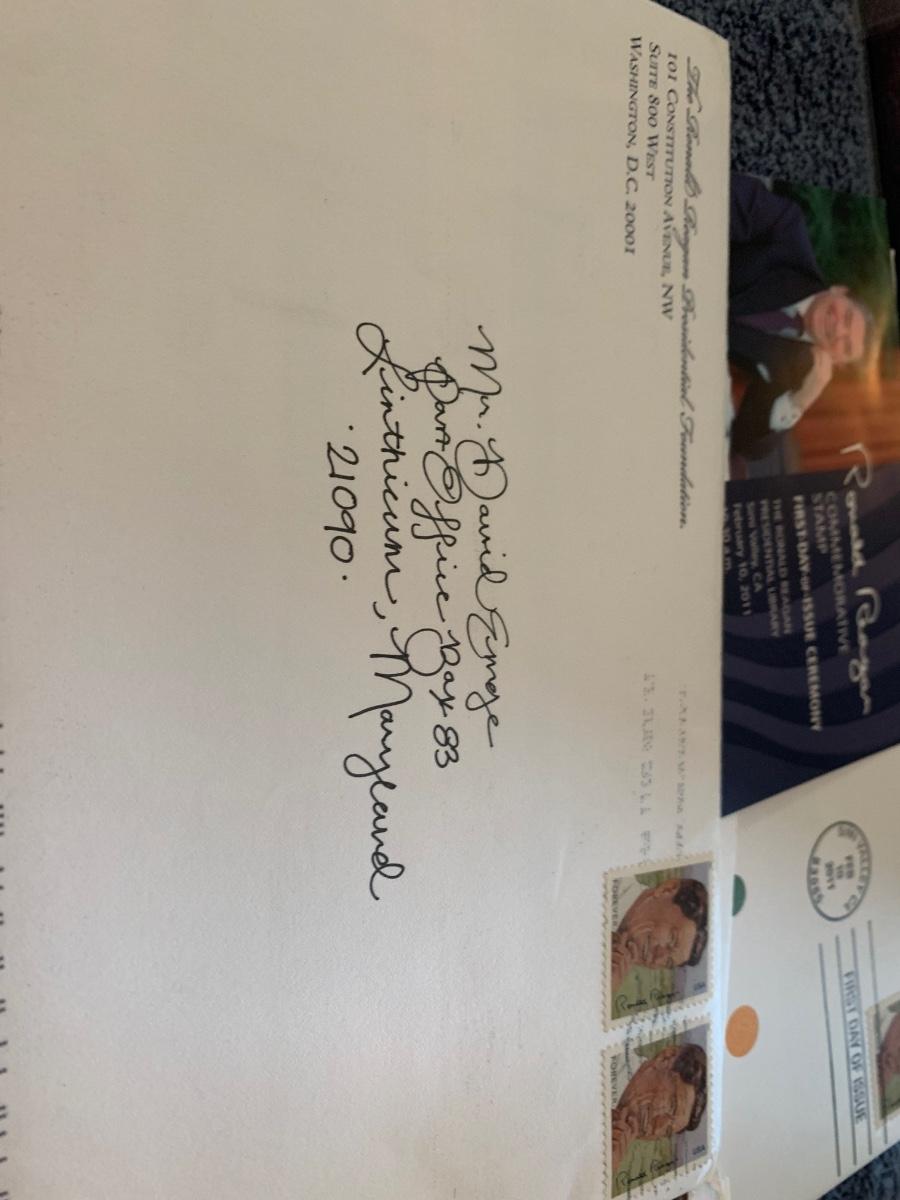 The Ronald Reagan Presidential Foundation
101 CONSTITUTION AVENUE, NW
SUITE 800 WEST
WASHINGTON, D.C. 20001
Mr. David Emge
Post Office Box 83
Linthicum, Maryland
21090.
FOREVER
USA
Ronald Reagan
FOREVER
USA
Ronald Reagan
Ronald Reagan
COMMEMORATIVE
STAMP
FIRST-DAY-OF-ISSUE CEREMONY
THE RONALD REAGAN
PRESIDENTIAL LIBRARY
Simi Valley, CA
February 10, 2011
SIMI VALLEY CA
FEB
10
2011
FIRST DAY OF ISSUE